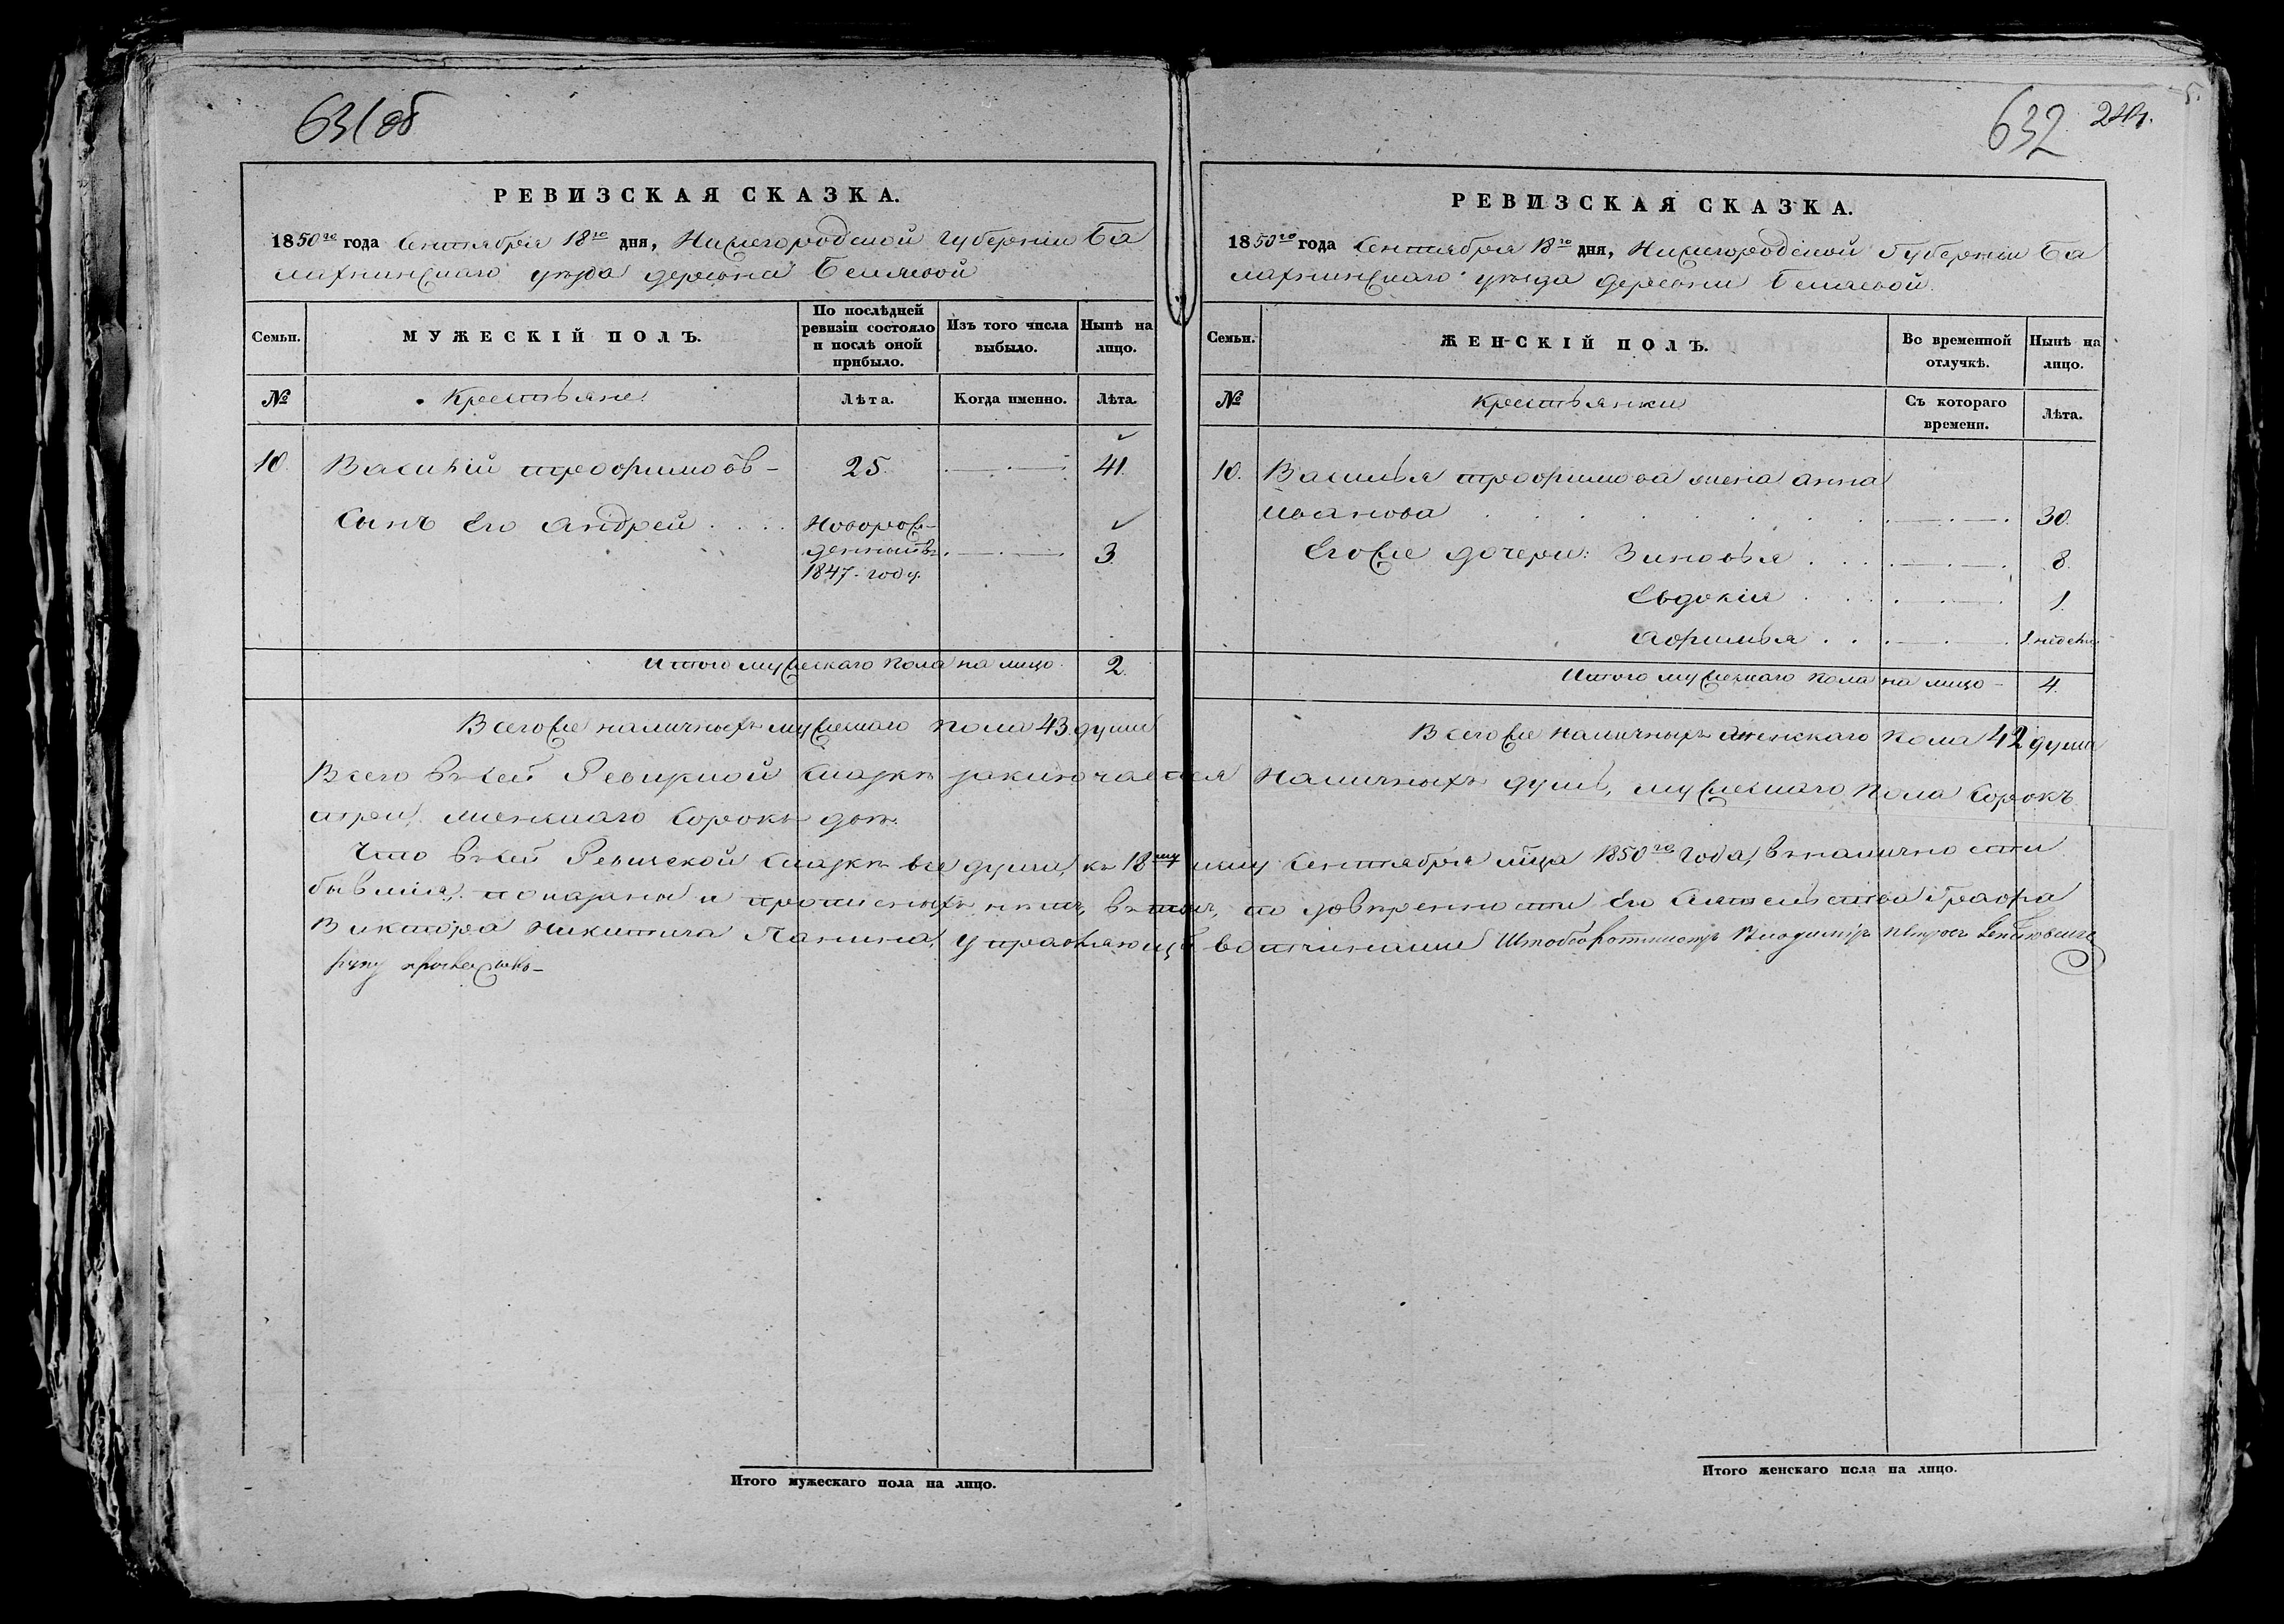 631 об
РЕВИЗСКАЯ СКАЗКА.
1850го года Сентября 18го дня, Нижегородской губернiи Ба
лахнинскаго уезда деревни Беляевой
Семьи.
МУЖЕСКIЙ ПОЛЪ.
По послѣдней ревизiи состояло и послѣ оной прибыло.
Изъ того числа выбыло.
Нынѣ на лицо.
№
Крестьяне.
Лѣта.
Когда именно.
Лѣта.
10. Василiй Трофимовъ - 25. 41.
Сынъ Его Андрей . . . . Новорож-
денный въ 3.
1847. году.
Итого мужескаго пола на лицо. 2.
Всего же наличныхъ мужескаго пола 43. души
632
РЕВИЗСКАЯ СКАЗКА.
1850го года Сентября 18го дня, Нижегородской Губернiи Ба
лахнинскаго уезда деревни Беляевой.
Семьи.
ЖЕНСКIЙ ПОЛЪ.
Во временной отлучкѣ.
Нынѣ на лицо.
№
Крестьянки
Съ котораго времени.
Лѣта.
10. Василья Трофимова жена Анна
Иванова 30.
Его же дочери: Зиновья . . . 8.
Евдокiя 1.
Афимья . . . 1. недели
Итого мужескаго пола на лицо - 4.
Всего же наличныхъ женскаго пола 42 души
Всего въ сей Ревизкой сказкѣ заключается наличныхъ душъ, мужескаго пола сорокъ
три, женскаго сорокъ две.
Что въ сей Ревижской сказкѣ все души, къ 18му числу Сентября мца 1850го года, въ наличности
бывшiя, показаны и прописныхъ нетъ, въ томъ, по доверенности Его Сiятельства Графа
Виктора Никитича Панина, Управляющiй вотчинами Штабсъ Ротмистръ Владимiръ Петровъ
руку приложилъ
Итого мужескаго пола на лицо.
Итого женскаго пола на лицо.